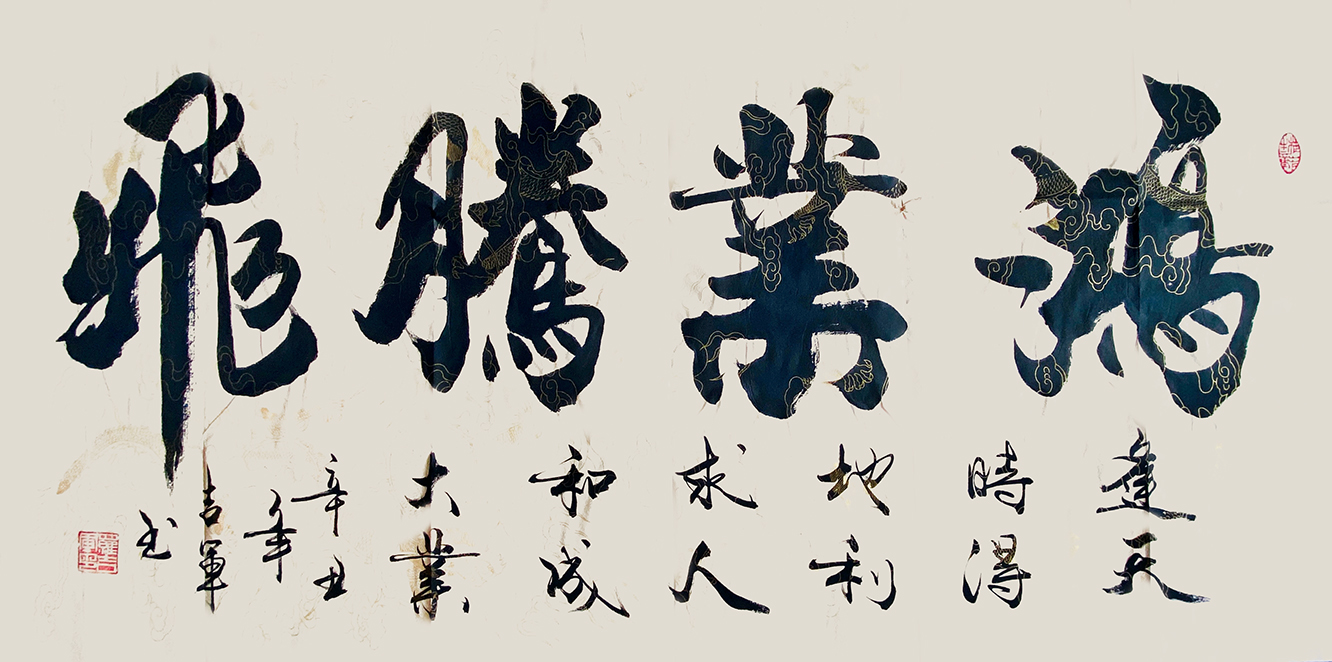 鴻業騰飛
逢天
時得
地利
求人
和成
大業
辛丑
年
吉軍
书